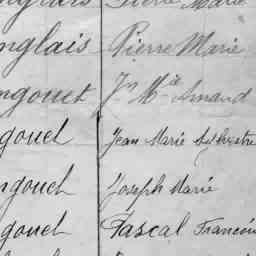 nglais Pierre Marie
nglais Pierre Marie
ngouet Jn Mie Amand
gouet Jean Marie Sylvestre
ngouet Joseph Marie
gouet Pascal Francois